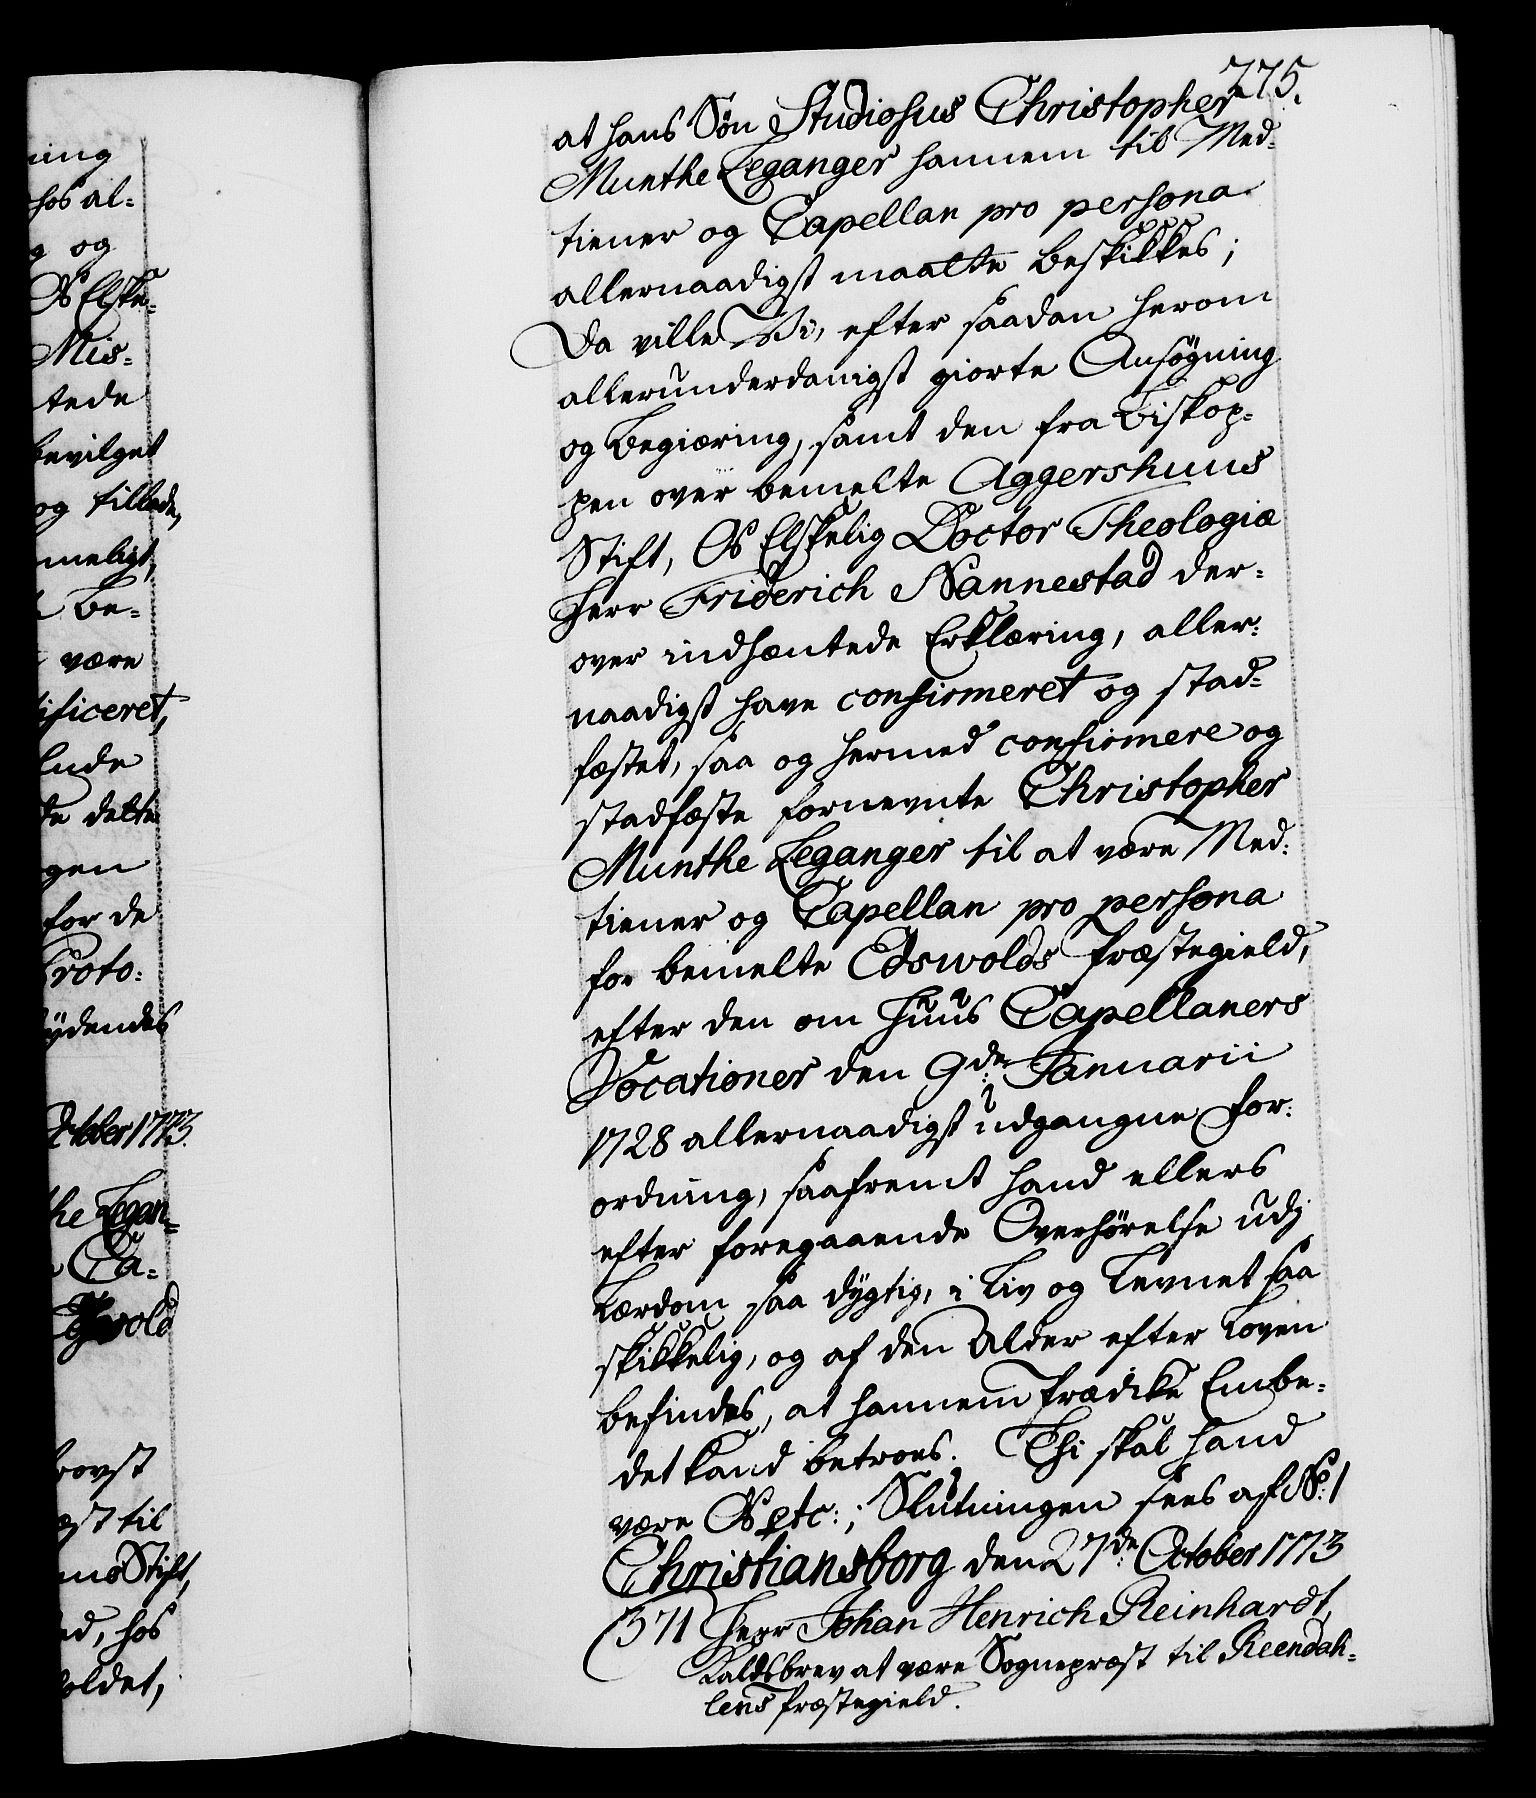 275.
at hans Søn Studiosus Christopher
Munthe Leganger hannem til Med-
tiener og Capellan pro persona
allernaadigst maatte beskikkes;
Da ville Vi, efter saadan herom
allerunderdanigst giorte Ansøgning
og Begiæring, samt den fra Biskop-
pen over bemelte Aggershuus
Stift, Os Elskelig Doctor Theologiæ
Herr Friderich Nannestad der-
over indhæntede Erklæring, aller-
naadigst have confirmeret og stad-
fæstet, saa og hermed confirmere og
stadfæste fornevnte Christopher
Munthe Leganger til at være Med-
tiener og Capellan pro persona
for bemelte Edswolds Præstegield,
efter den om Huus Capellaners
Vocationer den 9de Januarii
1728 allernaadigst udgangne For-
ordning, saafremt hand ellers
efter foregaaende Overhørelse udj
Lærdom saa dygtig, i Liv og Levnet saa
skikkelig, og af den Alder efter Loven
befindes, at hannem Prædike Embe-
det kand betroes. Thi skal hand
være Os etc:; Slutningen sees af No: 1
Christiansborg den 27de October 1773
371 Herr Johan Henrich Reinhardt,
Kaldsbrev at være Sognepræst til Reendah-
lens Præstegield.
ning
hos al-
og
Os Elske-
Mis-
tede
bevilget
og tillade,
meligt,
Be-
være
ificeret,
lnde
de dette
gen
for de
Proto-
ydendes
October 1773.
the Legan-
Ca-
wold
rovst
æst til
uus Stift,
ed, hos
oldet,